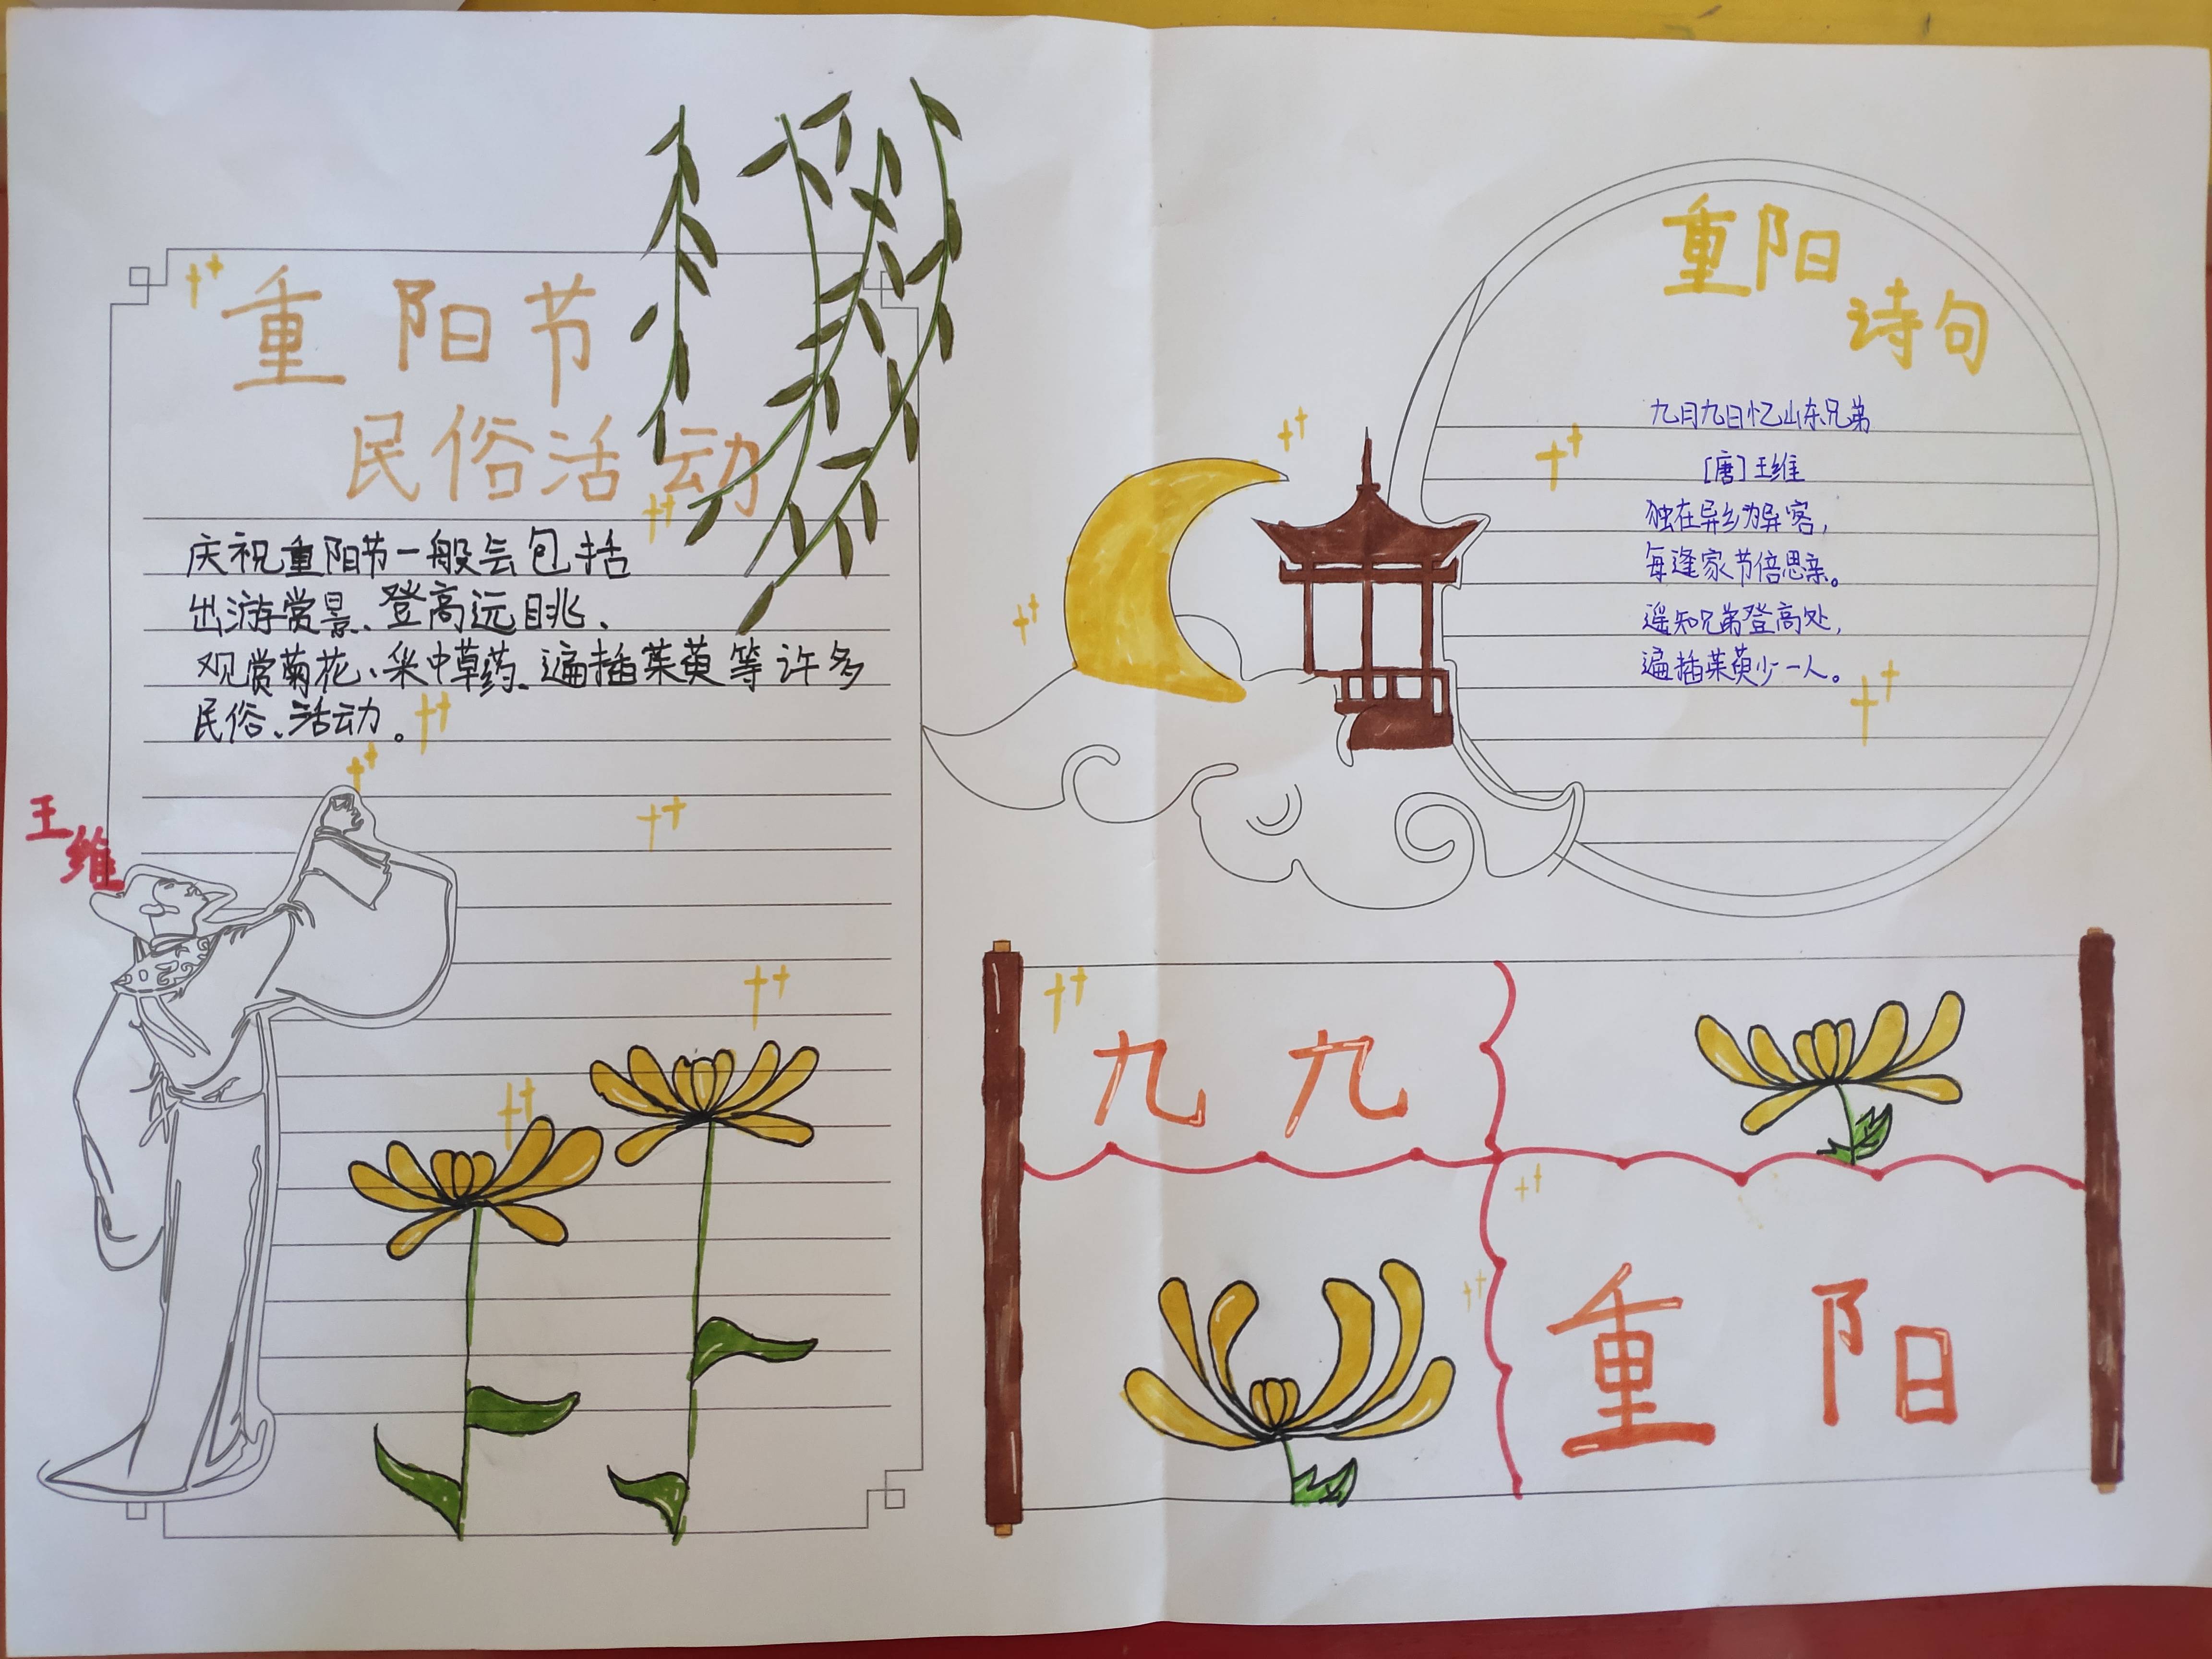 重阳节
民俗活动
庆祝重阳节一般会包括
出游赏景、登高远眺、
观赏菊花、采中草药、遍插茱萸等许多
民俗、活动。
王维
重阳
诗句
九月九日忆山东兄弟
[唐]王维
独在异乡为异客，
每逢家节倍思亲。
遥知兄弟登高处，
遍插茱萸少一人。
九九
重阳